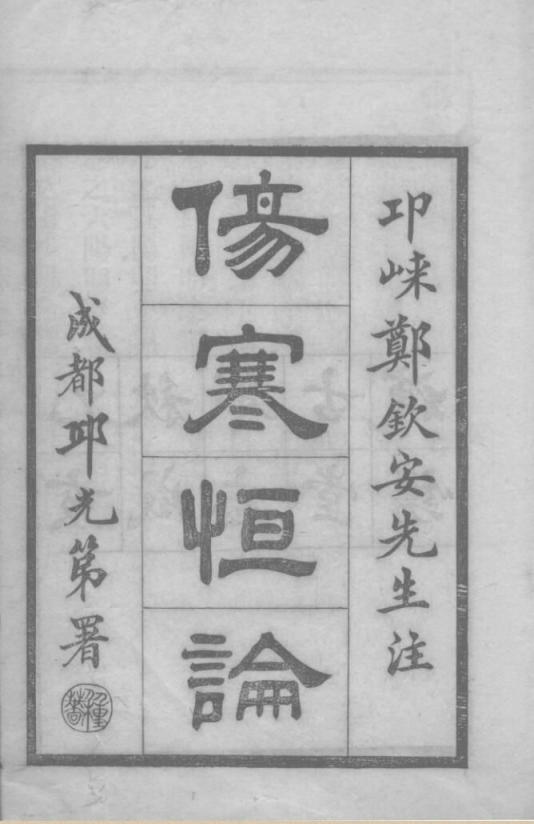 卭崍鄭欽安先生注
傷寒恒論
成都邱光第署